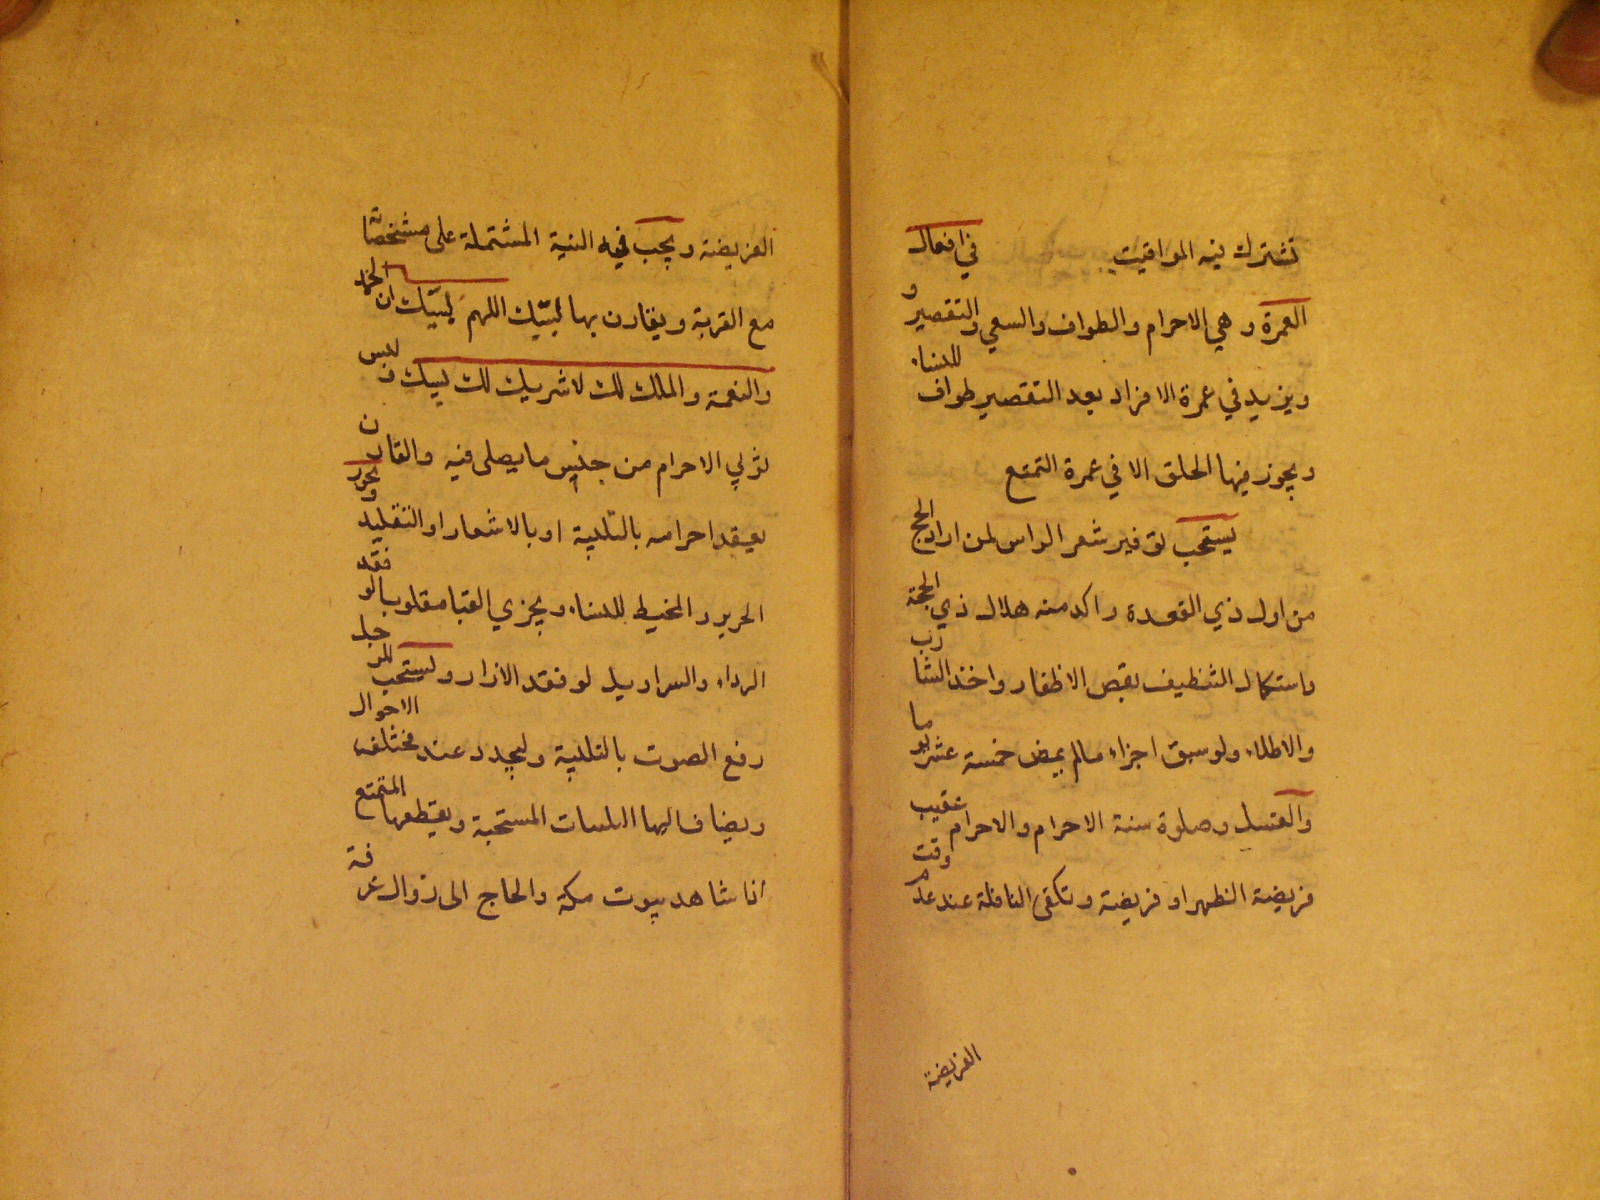 تشترك فيه المواقيت في افعال
العمرة و هي الاحرام والطواف والسعي والتقصير و
ويزيد في عمرة الافراد بعد التقصير طواف للنساء
ويجوز فيها الحلق الا في عمرة التمتع
يستحب توفير شعر الراس لمن اراد الحج
من اول ذي القعدة واكد منه هلال ذي الحجة
واستكمال التنظيف بقص الاظفار واخذ الشارب
والاطلاء ولو سبق اجزاء مالم يمض خمسة عشر يوما
والغسل وصلوة سنة الاحرام والاحرام عقيب
فريضة الظهر او فريضة وتكفي النافلة عند عدم وقت
الفريضة
الفريضة ويجب فيه النية المشتملة على مشخصاته
مع القربة ويقارن بها لبيك اللهم لبيك ان الحمد
والنعمة والملك لك لا شريك لك لبيك و لبس
ثوبي الاحرام من جنس ما يصلى فيه والقارن
يعقد احرامه بالتلبية او بالاشعار او التقليد ويجوز
الحرير والمخيط للنساء ويجزي القبا مقلوبا لو فقد
الرداء والسراويل لو فقد الازار ويستحب للرجل
رفع الصوت بالتلبية وليجدد عند مختلف الاحوال
ويضاف اليها التلبيات المستحبة ويقطعها المتمتع
اذا شاهد بيوت مكة والحاج الى زوال عرفة